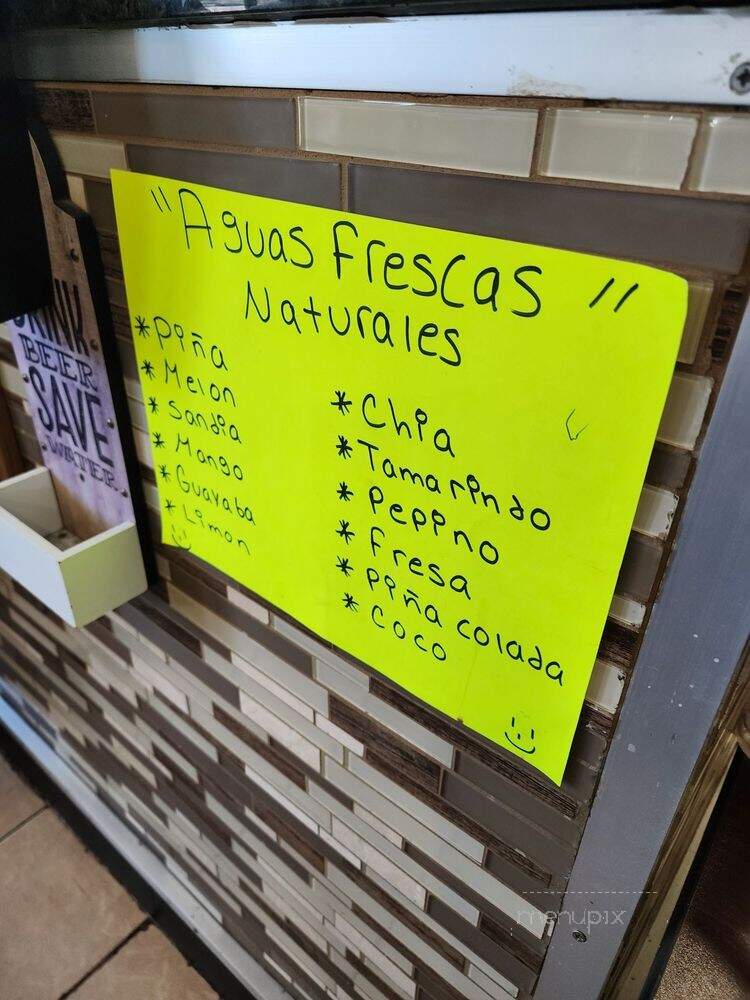 "Aguas frescas"
Naturales
* Piña
* Melon
* Sandia
* Mango
* Guayaba
* Limon
* Chia
* Tamarindo
* Pepino
* fresa
* Piña colada
* Coco
DRINK
BEER
SAVE
WATER
menupix